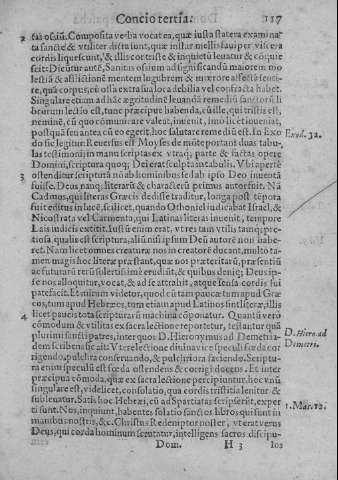 Concio tertia.
117
2 tas ossiũ. Composita verba vocat ea, quæ iusta statera examina-
ta sanctè & vtiliter dicta sunt, quæ instar mellis sauiper viscera
cordis liquescunt, & illis contristé & inquietũ leuatur & cõquie
scit: Dicũtur autẽ, Sanitas ossium ad significandũ maiorem mo
lestiã & afflictionẽ mentem lugubrem & mœrore affectã senti-
re, quã corpus, cũ ossa extra sua loca debilia vel confracta habet.
Singulare etiam ad hãc ægritudinẽ leuandã remediũ sanctorũ li
brorum lectio est, tunc præcipuè habenda, cũ ille, qui tristis est,
neminẽ, cũ quo cõmunicare valeat, inuenit, imò licet inueniat,
postquã seu antea cũ eo egerit, hoc salutare remediũ est. In Exo
do sic legitur: Reuersus est Moyses de mõte portant duas tabu-
las testimonij in manu scriptas ex vtraq; parte & factas opere
Domini, scriptura quoq; Dei erat sculpta in tabulis. Vbi apertè
3 ostenditur scripturã nõ ab hominibus sed ab ipso Deo inuentã
fuisse. Deus namq; literarũ & characterũ primus autor fuit. Nã
Cadmus, qui literas Græcis dedisse traditur, longa post tẽpora
fuit editus in lucẽ, scilicet, quando Othoniel iudicabat Israel, &
Nicostrata vel Carmento, qui Latinas literas inuenit, tempore
Lais iudicis extitit. Iustũ enim erat, vt res tam vtilis tamq; pre-
tiosa, qualis est scriptura, aliũ nisi ipsum Deũ autorẽ non habe-
ret. Nam licet omnes creaturæ nos in creatorẽ ducant, multo ta-
men magis hoc literæ præstant, quæ nos præteritarũ, præsentiũ
ac futurarũ rerũ solertissimè erudiũt, & quibus deniq; Deus ip-
se nos alloquitur, vocat, & ad se attrahit, atque sensa cordis sui
patefacit. Et mirum videtur, quod cũ tam paucæ tum apud Græ
cos, tum apud Hebræos, tum etiam apud Latinos sint literæ, illis
4 licet paucis tota scripturarũ machina cõponatur. Quantũ verò
cõmodum & vtilitas ex sacra lectione reportetur, testantur quã
plurimi sancti patres, inter quos D. Hieronymus ad Demetria-
dem scribens sic ait: Vtere lectione diuina vice speculi fœda cor
rigendo, pulchra conseruando, & pulchriora faciendo. Scriptu-
ra enim speculũ est fœda ostendens & corrigi docens. Et inter
præcipua cõmoda, quæ ex sacra lectione percipiuntur, hoc vnũ
singulare est, videlicet, consolatio, qua cordis tristitia lenitur &
subleuatur. Satis hoc Hebræi, cũ ad Spartiatas scripserit, exper
ti sunt. Nos, inquiunt, habentes solatio sanctos libros, qui sunt in
manibus nostris, &c. Christus Redemptor noster, vt erat verus
Deus, qui corda hominum scrutatur, intelligens sacros discipu-
Dom. H 3 los
Exod. 32.
D. Hiero. ad
Demetri.
1. Mac. 12.